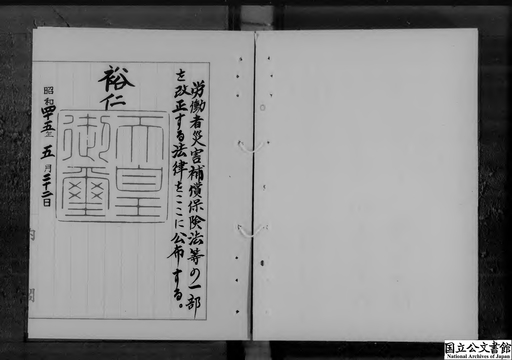 労働者災害補償保険法等の一部
を改正する法律をここに公布する。
裕仁
天皇
御璽
昭和四十五年五月二十二日
国立公文書館
National Archives of Japan